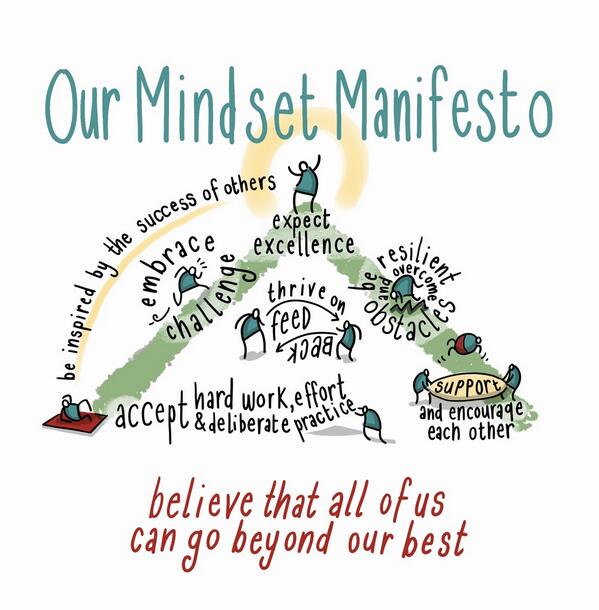 Our Mindset Manifesto
be inspired by the success of others
expect
excellence
embrace
challenge
be resilient
and overcome
obstacles
thrive on
FEED
BACK
accept hard work, effort
& deliberate practice
support
and encourage
each other
believe that all of us
can go beyond our best